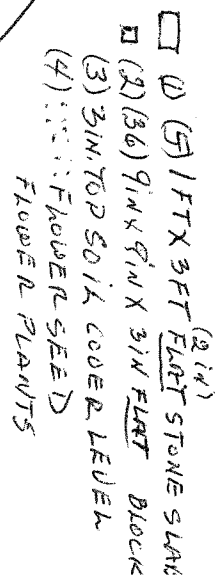 (2 in)
(1) (5) 1 FT X 3 FT FLAT STONE SLAB
(2) (36) 9 in X 9 in X 3 iN FLAT BLOCK
(3) 3 iN. TOP SOiL COVER LEVEL
(4) FLOWER SEED
FLOWER PLANTS